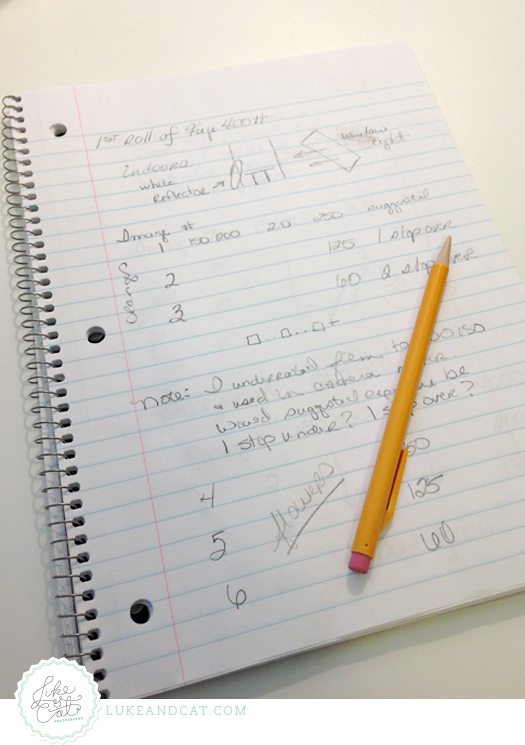 1ST Roll of Fuji 400H
indoors
white
Reflector
Window
light
Image #
1 ISO 200 2.0 250 suggested
2 125 1 stop over
3 60 2 stop over
Note: I underrated film to 200 ISO
& used in camera meter.
Would suggested exposure be
1 stop under? 1 stop over?
4
5 flowers 125
6 60
Luke & Cat
PHOTOGRAPHY
LUKEANDCAT.COM